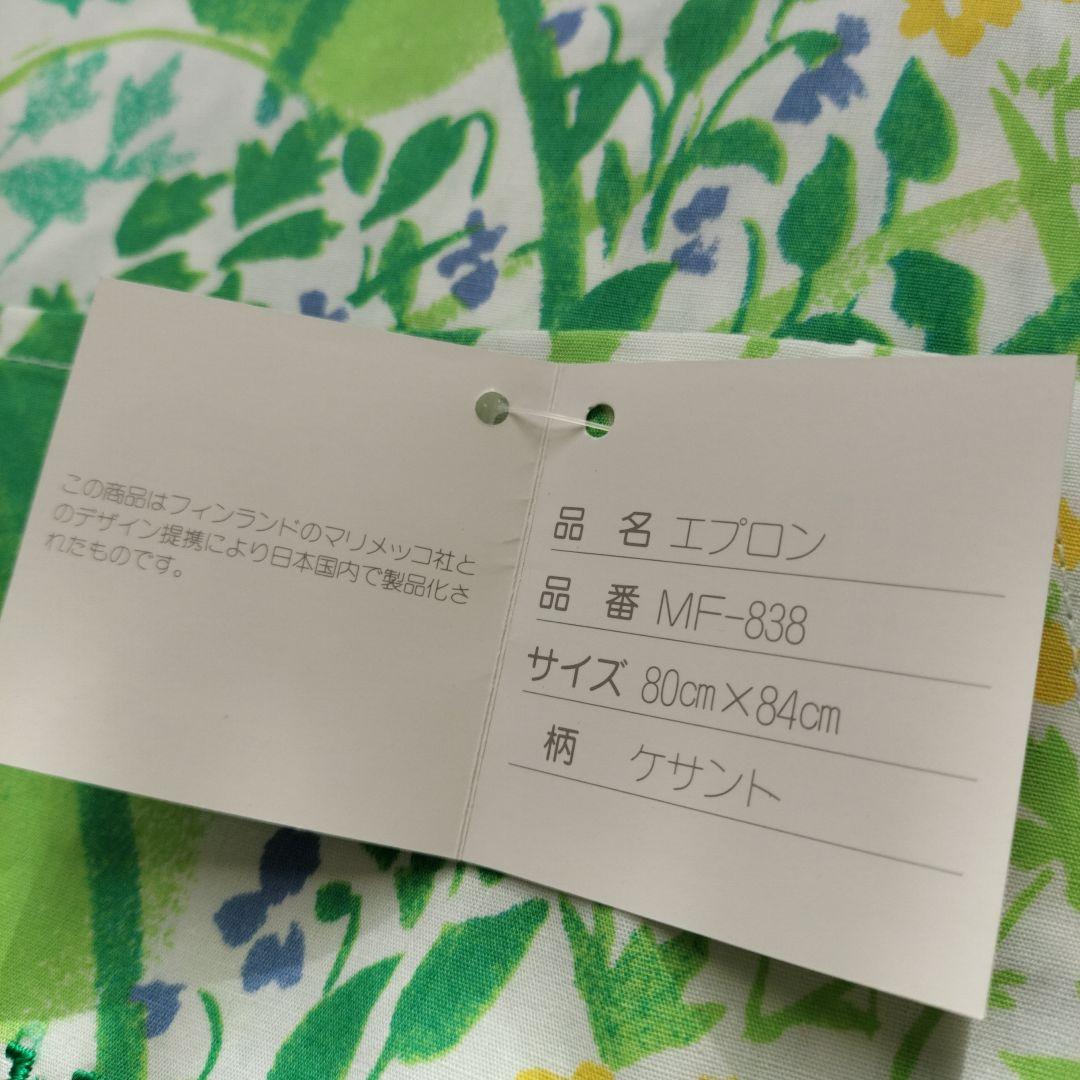 この商品はフィンランドのマリメッコ社と
のデザイン提携により日本国内で製品化さ
れたものです。
品 名 エプロン
品 番 MF-838
サイズ 80cm×84cm
柄 ケサント